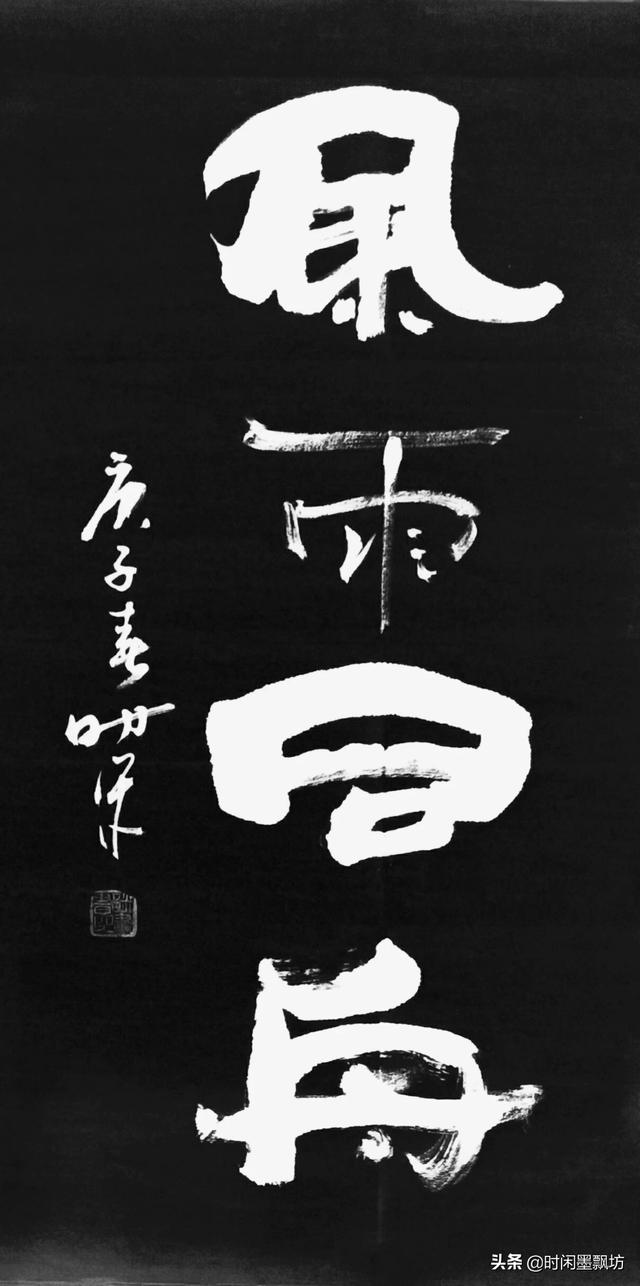 風雨同舟
庚子春
头条 @时闲墨飘坊